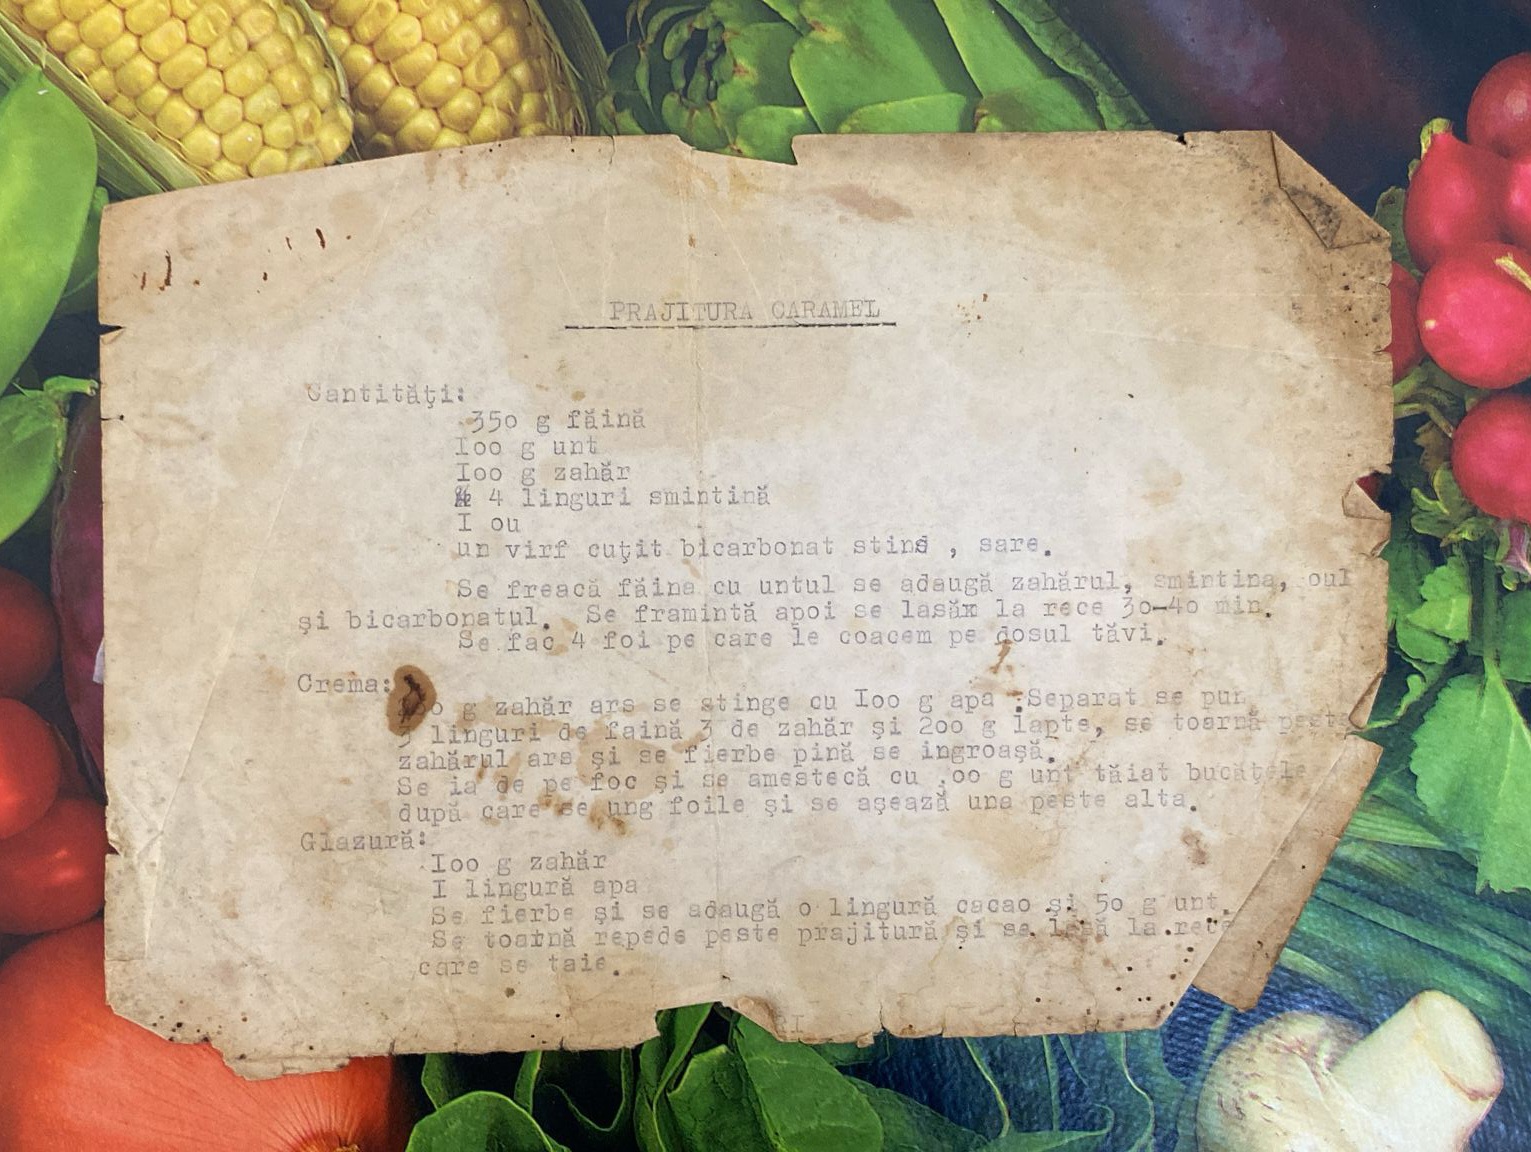 PRAJITURA CARAMEL
Cantităţi:
350 g făină
I00 g unt
I00 g zahăr
4 linguri smintină
I ou
un virf cuţit bicarbonat stins , sare.
Se freacă făina cu untul se adaugă zahărul, smintina, oul
şi bicarbonatul. Se framintă apoi se lasăx la rece 30-40 min.
Se fac 4 foi pe care le coacem pe dosul tăvi.
Crema:
g zahăr ars se stinge cu I00 g apa .Separat se pun
3 linguri de faină 3 de zahăr şi 200 g lapte, se toarnă peste
zahărul ars şi se fierbe pină se ingroaşă.
Se ia de pe foc şi se amestecă cu g unt tăiat bucăţele
după care se ung foile şi se aşează una peste alta.
Glazură:
I00 g zahăr
I lingură apa
Se fierbe şi se adaugă o lingură cacao şi 50 g unt.
Se toarnă repede peste prajitură şi se lasă la rece
care se taie.
I